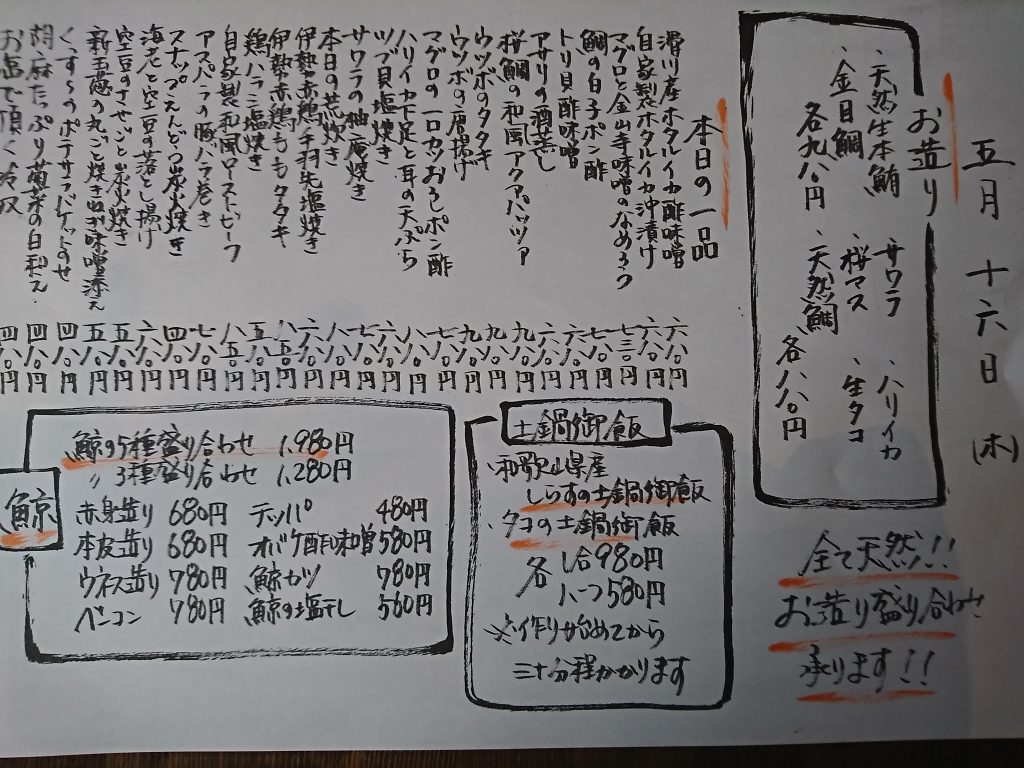 五月十六日(木)
お造り
、天然生本鮪
、金目鯛
各九八〇円
、サワラ
、桜マス
、天然鯛
、ハリイカ
、生タコ
各八八〇円
全て天然!!
お造り盛り合わせ
承ります!!
本日の一品
滑川産ホタルイカ酢味噌 六八〇円
自家製ホタルイカ沖漬け 六八〇円
マグロと金山寺味噌のなめろう 七三〇円
鯛の白子ポン酢 七八〇円
トリ貝酢味噌 六八〇円
アサリの酒蒸し 六八〇円
桜鯛の和風アクアパッツァ 九八〇円
ウツボのタタキ 九八〇円
ウツボの唐揚げ 九八〇円
マグロの一口カツおろしポン酢 七八〇円
ハリイカ下足と耳の天ぷら 八八〇円
ツブ貝塩焼き 六八〇円
サワラの柚庵焼き 七八〇円
本日の荒焼き 八八〇円
伊勢赤鶏手羽先塩焼き 六八〇円
伊勢赤鶏ももタタキ 八五〇円
鶏ハラミ塩焼き 五八〇円
自家製和風ローストビーフ 八五〇円
アスパラの豚バラ巻き 七八〇円
スナップえんどう炭火焼き 四八〇円
海老と空豆の落とし揚げ 六八〇円
空豆のさやごと炭火焼き 五八〇円
新玉葱の丸ごと焼き 味噌添え 五八〇円
くっすんのポテサラバケットのせ 四八〇円
胡麻たっぷり菊菜の白和え 四八〇円
お塩で頂く冷奴 四八〇円
土鍋御飯
、和歌山県産
しらすの土鍋御飯
、タコの土鍋御飯
各 1合980円
ハーフ580円
※作り始めてから
三十分程かかります
鯨
、鯨の5種盛り合わせ 1,980円
〃3種盛り合わせ 1,280円
赤身造り 680円 テッパ 480円
本皮造り 680円 オバケ酢味噌 580円
ウネス造り 780円 鯨カツ 780円
ベーコン 780円 鯨の塩干し 560円